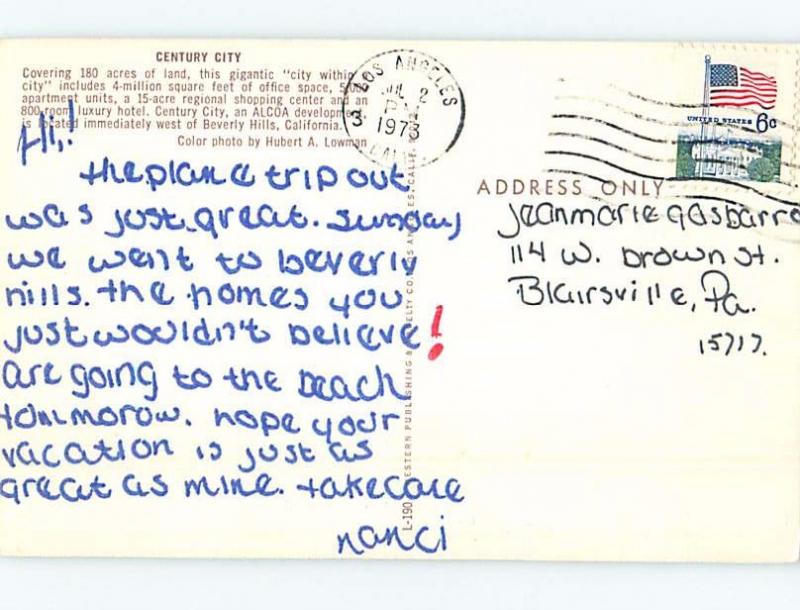 CENTURY CITY
Covering 180 acres of land, this gigantic "city within
city" includes 4-million square feet of office space, 5,000
apartment units, a 15-acre regional shopping center and an
800 room luxury hotel. Century City, an ALCOA development
is located immediately west of Beverly Hills, California.
Color photo by Hubert A. Lowman
Hi,!
the plane trip out
was just great. sunday
we went to beverly
hills. the homes you
just wouldn't believe!
are going to the beach
tommorow. hope your
vacation is just as
great as mine. take care
nanci
LOS ANGELES
2
PM
1973
CALIF
UNITED STATES 6c
ADDRESS ONLY
jeanmarie gasbarro
114 w. brown st.
Blairsville, Pa.
15717.
L-190 WESTERN PUBLISHING & NOVELTY CO., LOS ANGELES, CALIF.